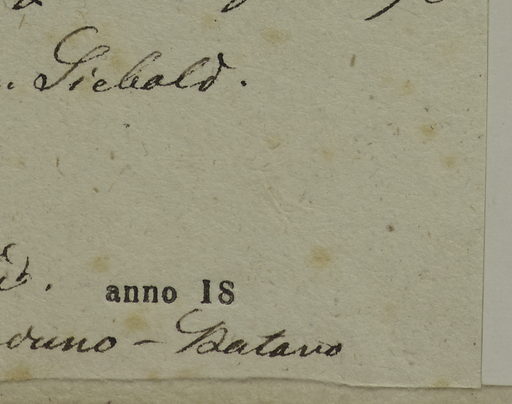 . Siebold.
anno 18
duno - Batavo